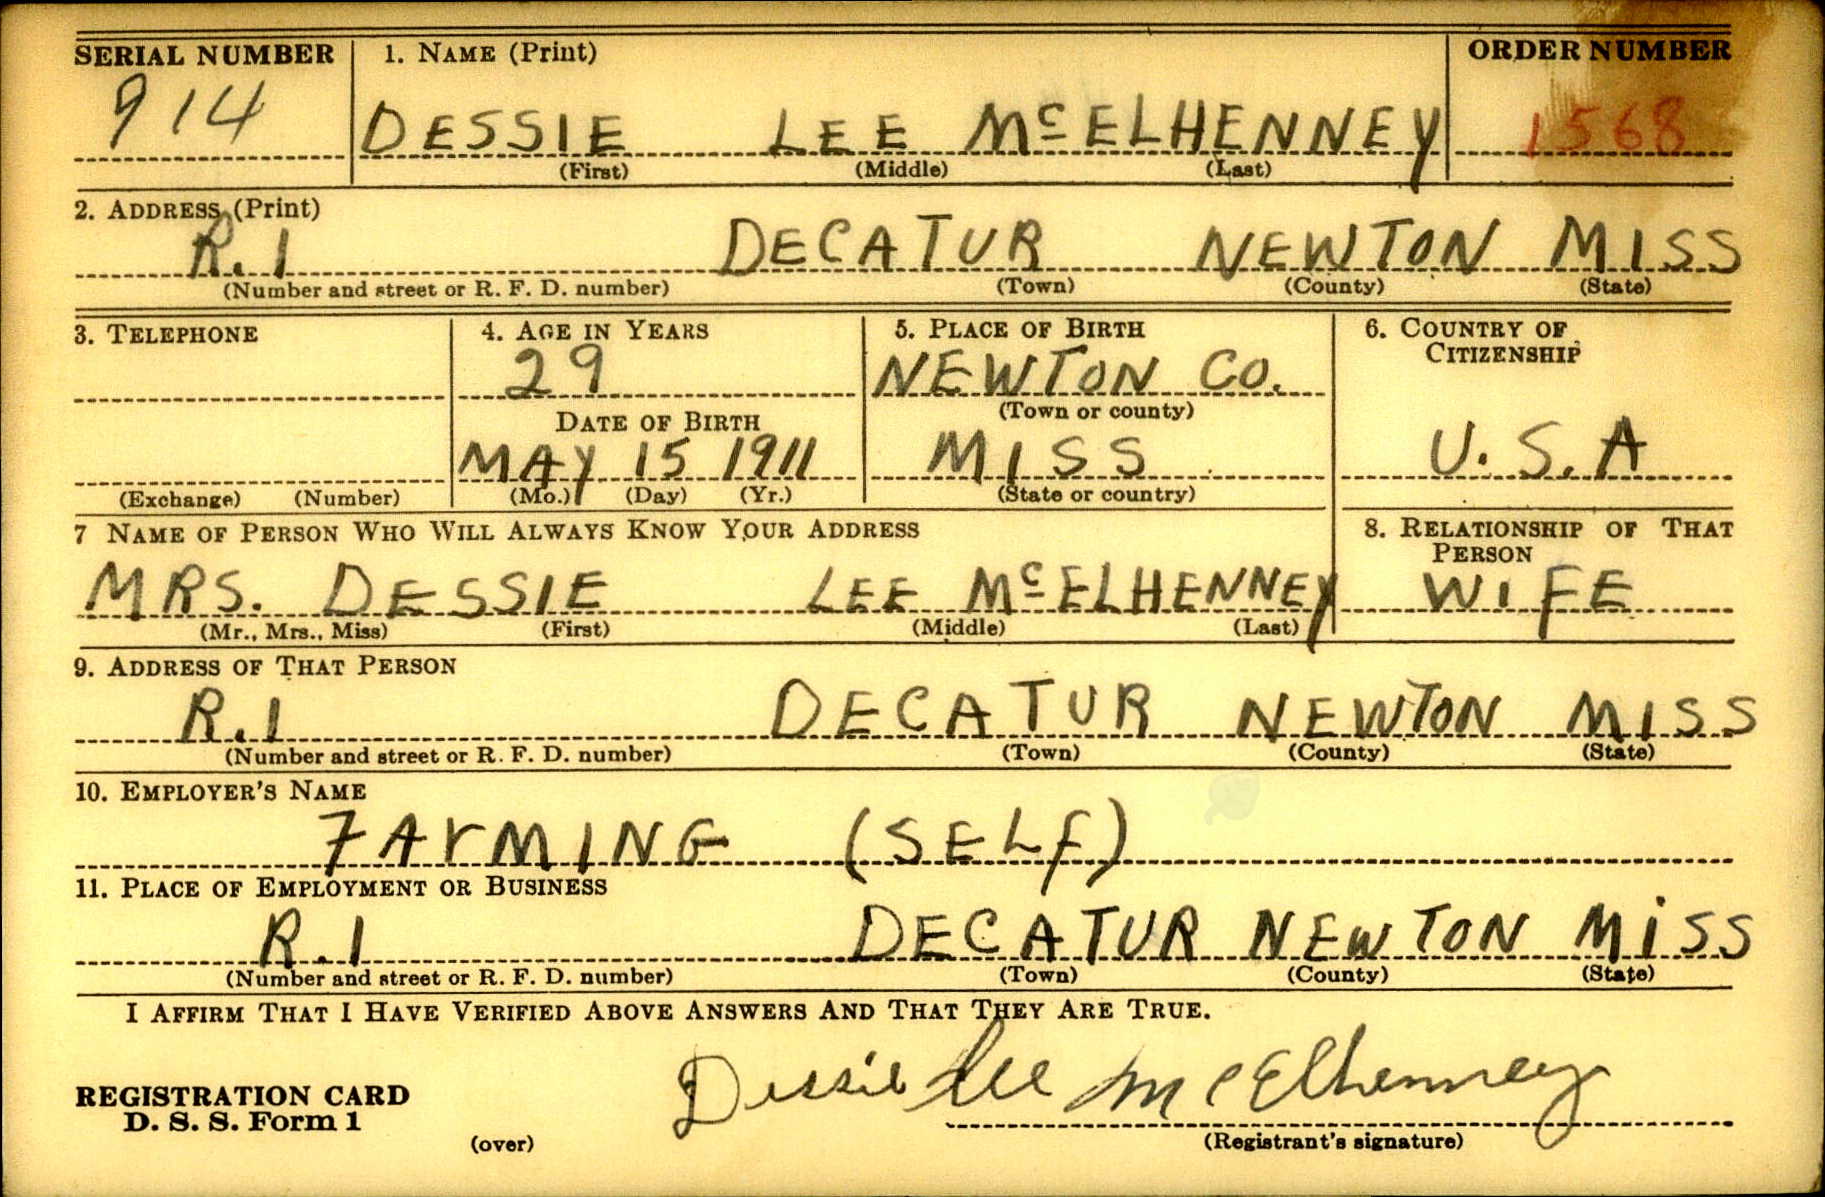 SERIAL NUMBER 1. NAME (Print) ORDER NUMBER
914 DESSIE LEE McELHENNEY 1568
(First) (Middle) (Last)
2. ADDRESS (Print)
R.1 DECATUR NEWTON MISS
(Number and street or R. F. D. number) (Town) (County) (State)
3. TELEPHONE 4. AGE IN YEARS 5. PLACE OF BIRTH 6. COUNTRY OF
CITIZENSHIP
29 NEWTON CO.
(Town or county)
DATE OF BIRTH
MAY 15 1911 MISS U.S.A
(Exchange) (Number) (Mo.) (Day) (Yr.) (State or country)
7 NAME OF PERSON WHO WILL ALWAYS KNOW YOUR ADDRESS 8. RELATIONSHIP OF THAT
PERSON
MRS. DESSIE LEE McELHENNEY WIFE
(Mr., Mrs., Miss) (First) (Middle) (Last)
9. ADDRESS OF THAT PERSON
R.1 DECATUR NEWTON MISS
(Number and street or R. F. D. number) (Town) (County) (State)
10. EMPLOYER'S NAME
FArMING (SELf)
11. PLACE OF EMPLOYMENT OR BUSINESS
R.1 DECATUR NEWTON MiSS
(Number and street or R. F. D. number) (Town) (County) (State)
I AFFIRM THAT I HAVE VERIFIED ABOVE ANSWERS AND THAT THEY ARE TRUE.
Dessie Lee McElhenney
REGISTRATION CARD
D. S. S. Form 1
(over) (Registrant's signature)